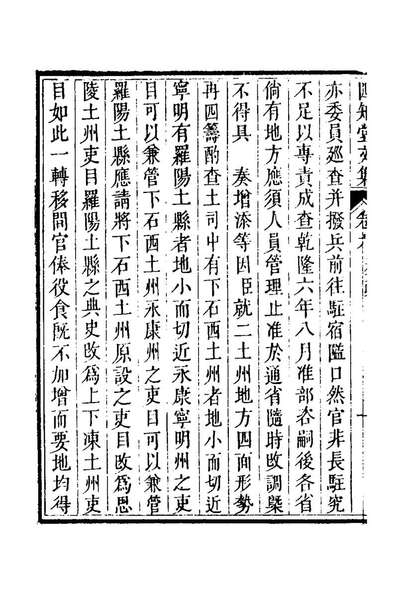 四知堂文集
亦委員廵查并撥兵前往駐宿隘口然官非長駐究
不足以專責成查乾隆六年八月准部咨嗣後各省
倘有地方應須人員管理止准於通省隨時改調槩
不得具　奏增添等因臣就二土州地方四面形勢
再四籌酌查土司中有下石西土州者地小而切近
寧明有羅陽土縣者地小而切近永康寧明州之吏
目可以兼管下石西土州永康州之吏目可以兼管
羅陽土縣應請將下石西土州原設之吏目改為思
陵土州吏目羅陽土縣之典史改爲上下凍土州吏
目如此一轉移間官俸役食旣不加增而要地均得